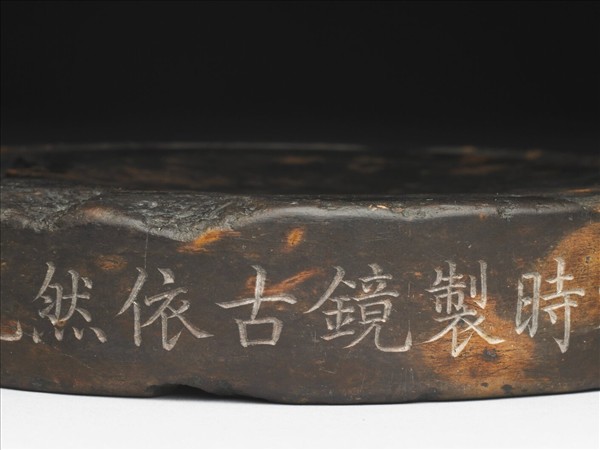 時製鏡古依然